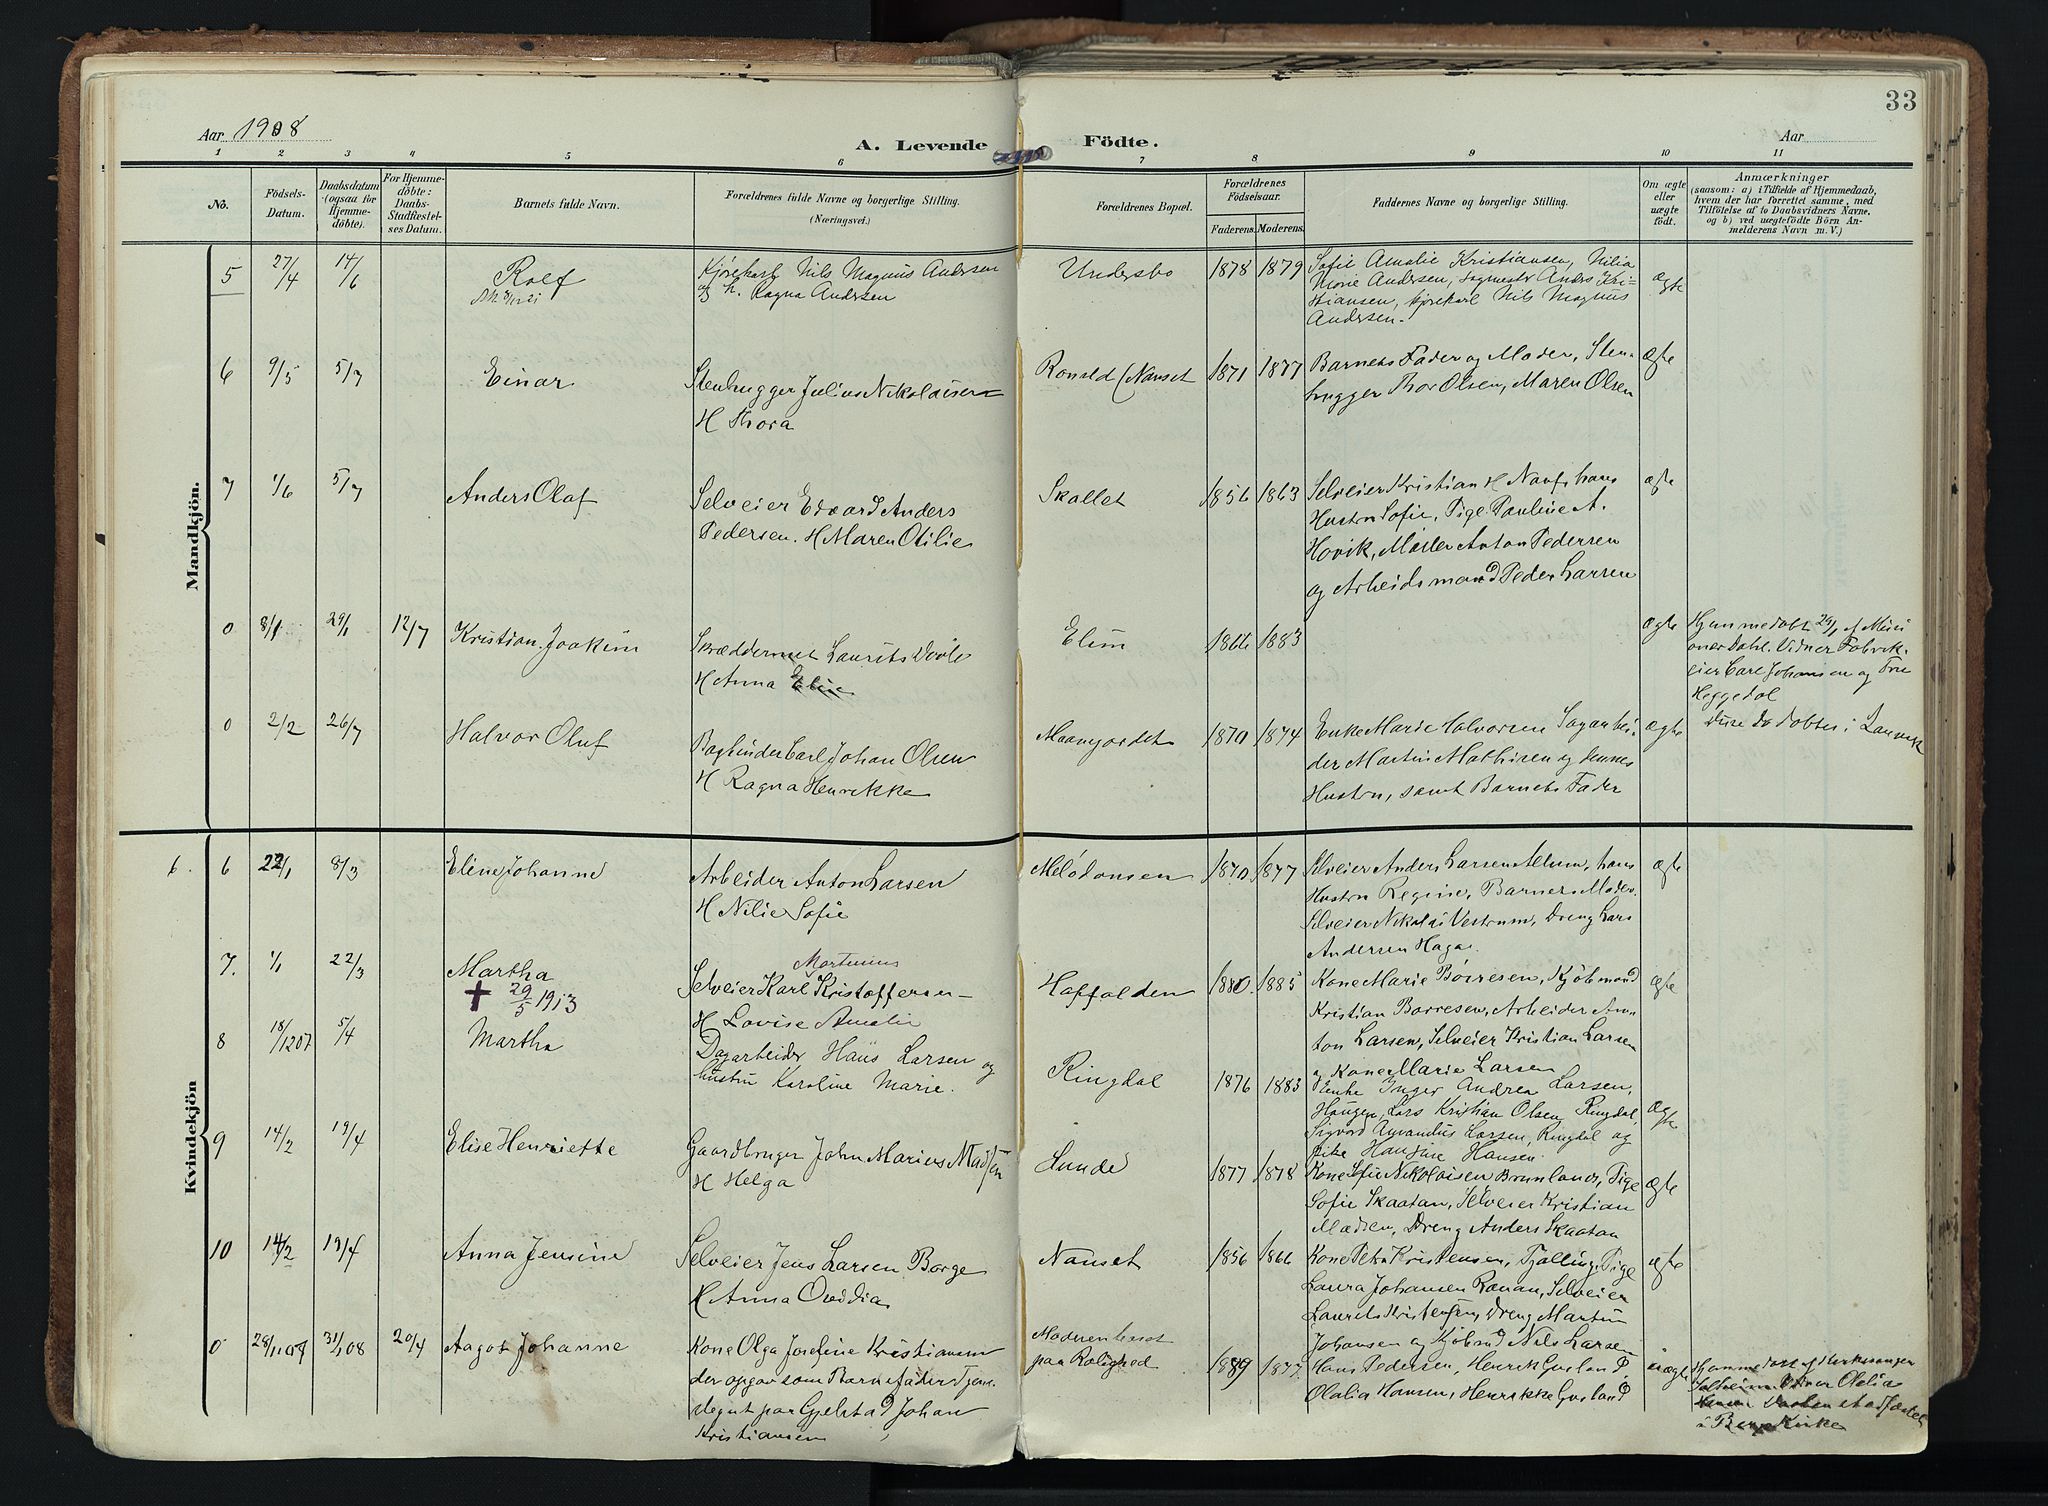 33
Aar 1908
A. Levende Födte.
Aar
1 2 3 4 5 6 7 8 9 10 11
No.
Födsels-Datum.
Daabsdatum (ogsaa for Hjemme-döbte).
For Hjemme-döbte: Daabs-Stadfæstel-ses Datum.
Barnets fulde Navn.
Forældrenes fulde Navne og borgerlige Stilling.
(Næringsvei.)
Forældrenes Bopæl.
Forældrenes Födselsaar.
Faderens. Moderens.
Faddernes Navne og borgerlige Stilling.
Om ægte eller uægte födt.
Anmærkninger
(saasom: a) i Tilfælde af Hjemmedaab,
hvem der har forrettet samme, med
Tilföielse af to Daabsvidners Navne,
og b) ved uægtefödte Börn An-
melderens Navn m. V.)
Mandkjön.
5 27/4 14/6 Rolf
Kjørekarl Nils Magnus Andersen
og h. Ragna Andersen
Undersbo 1878 1879
Sofie Amalie Kristiansen, Nilia
Marie Andersen, Sagmester Anders Kri-
stiansen, Kjørekarl Nils Magnus
Andersen.
ægte
6 9/5 5/7 Einar
Stenhugger Julius Nikolaisen
H Thora
Ronseld (Nanset 1871 1877
Barnets Fader og Moder, Sten-
hugger Thor Olsen, Maren Olsen
ægte
7 1/6 5/7 Anders Olaf
Selveier Edvard Anders
Pedersen. H Maren Otilie
Skallet 1856 1863
Selveier Kristian H Nauf, hans
Hustru Sofie, Pige Pauline A.
Hovik, Maler Anton Pedersen
og Arbeidsmand Peder Larsen
ægte
0 8/1 29/1 12/7 Kristian Joakim
Skræddermest Laurits Doole
H Anna Elise
Elim 1866 1883
ægte
Hjemmedøbt 29/1 af Misi
onær Dahl. Vidner Fabrik-
eier Carl Johansen og Frue
Heggedal
0 2/2 26/7 Halvor Oluf
Bagbinder Carl Johan Olsen
H Ragna Henrikke
Maanejordet 1870 1874
Enke Marie Halvorsen Sagarbei-
der Martin Mathisen og dennes
Hustru, samt Barnets Fader
ægte
Disse to døbtes i Laurvik
Kvindekjön
6. 6 22/1 8/3 Eline Johanne
Arbeider Anton Larsen
H Nilie Sofie
Meløddansen 1870 1877
Selveier Anders Larsen Allum, hans
Hustru Regine, Barnets Moder.
Selveier Nikolai Vestrum, Dreng Lars
Andersen Haga.
ægte
7. 1/1 22/3 Martha
✝ 29/5 1913
Selveier Karl Martinius Kristoffersen
H Lovise Amalie
Haffalden 1880 1885
Kone Marie Børresen, Kjøbmand
Kristian Børresen, Arbeider An-
ton Larsen, Selveier Kristian Larsen
og Kone Marie Larsen
ægte
8 18/12 07 5/4 Martha
Dagarbeider Hans Larsen og
hustru Karoline Marie.
Ringdal 1876 1883
Enke Inger Andrea Larsen,
Haugen, Lars Kristian Olsen, Ringdal,
Sigvard Amandus Larsen, Ringdal og
pike Hansine Hansen.
ægte
9 14/2 19/4 Elise Henriette
Gaardbruger John Marius Madsen
H Helga
Lunde 1877 1878
Kone Sofie Nikolaisen Brunlanes, Pige
Sofie Skaatan, Selveier Kristian
Madsen, Dreng Anders Skaatan
ægte
10 14/2 19/4 Anna Jensine
Selveier Jens Larsen Borge
H Anna Ovidia
Nanset 1856 1866
Kone Petra Kristensen, Tjølling, Pige
Laura Johansen Ranan, Selveier
Laurits Kristensen, Dreng Martin
Johansen og Kjøbmd Nils Larsen
ægte
0 28/11 07 31/1 08 20/4 Aagot Johanne
Kone Olga Josefine Kristiansen
der opgav som Barnefader Tjene-
degut paa Gjelstad Johan
Kristiansen
Moderen bosat
paa Rolighed 1889 1877
Hans Pedersen, Henrik Gusland,
Olalia Hansen, Henrikke Gusland
uægte
Hjemmedøbt af Kirkesanger
Solheim Vidner Olalia
Hansen Daaben stadfæstet
i Berg Kirke